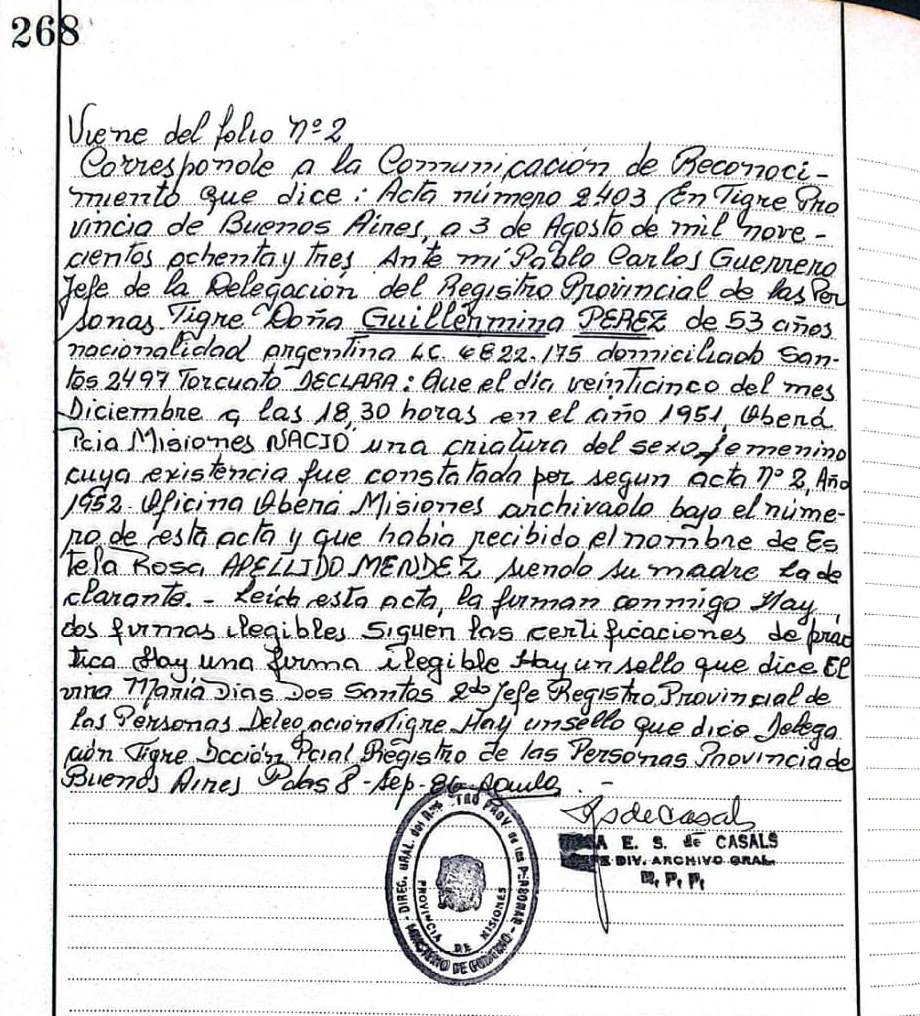 268
Viene del folio Nº 2
Corresponde a la Comunicación de Reconoci-
miento que dice: Acta número 2.403 En Tigre Pro
vincia de Buenos Aires, a 3 de Agosto de mil nove-
cientos ochenta y tres Ante mí Pablo Carlos Guerrero
Jefe de la Delegación del Registro Provincial de las Per
sonas Tigre Doña Guillermina PEREZ de 53 años
nacionalidad argentina L.C. 4822.175 domiciliado San-
tos 2497 Torcuato DECLARA: Que el día veinticinco del mes
Diciembre a las 18,30 horas en el año 1951, Oberá
Pcia Misiones NACIO una criatura del sexo femenino
cuya existencia fue constatada por segun acta Nº 2, Año
1952. Oficina Oberá Misiones archivado bajo el núme-
ro de esta acta y que había recibido el nombre de Es
tela Rosa APELLIDO MENDEZ siendo su madre la de
clarante. - Leida esta acta, la firman conmigo Hay
dos firmas ilegibles Siguen las certificaciones de prác
tica Hay una firma ilegible Hay un sello que dice El
vira María Dias Dos Santos 2do Jefe Registro Provincial de
las Personas Delegación Tigre Hay un sello que dice Delega
ción Tigre Dcción Pcial Registro de las Personas Provincia de
Buenos Aires Pdas 8-Sep-86
deCasal
E. S. de CASALS
DIV. ARCHIVO GRAL.
R. P. P.
DIREC. GRAL. del REG. PROV. de las PERSONAS
PROVINCIA DE MISIONES
MINISTERIO DE GOBIERNO